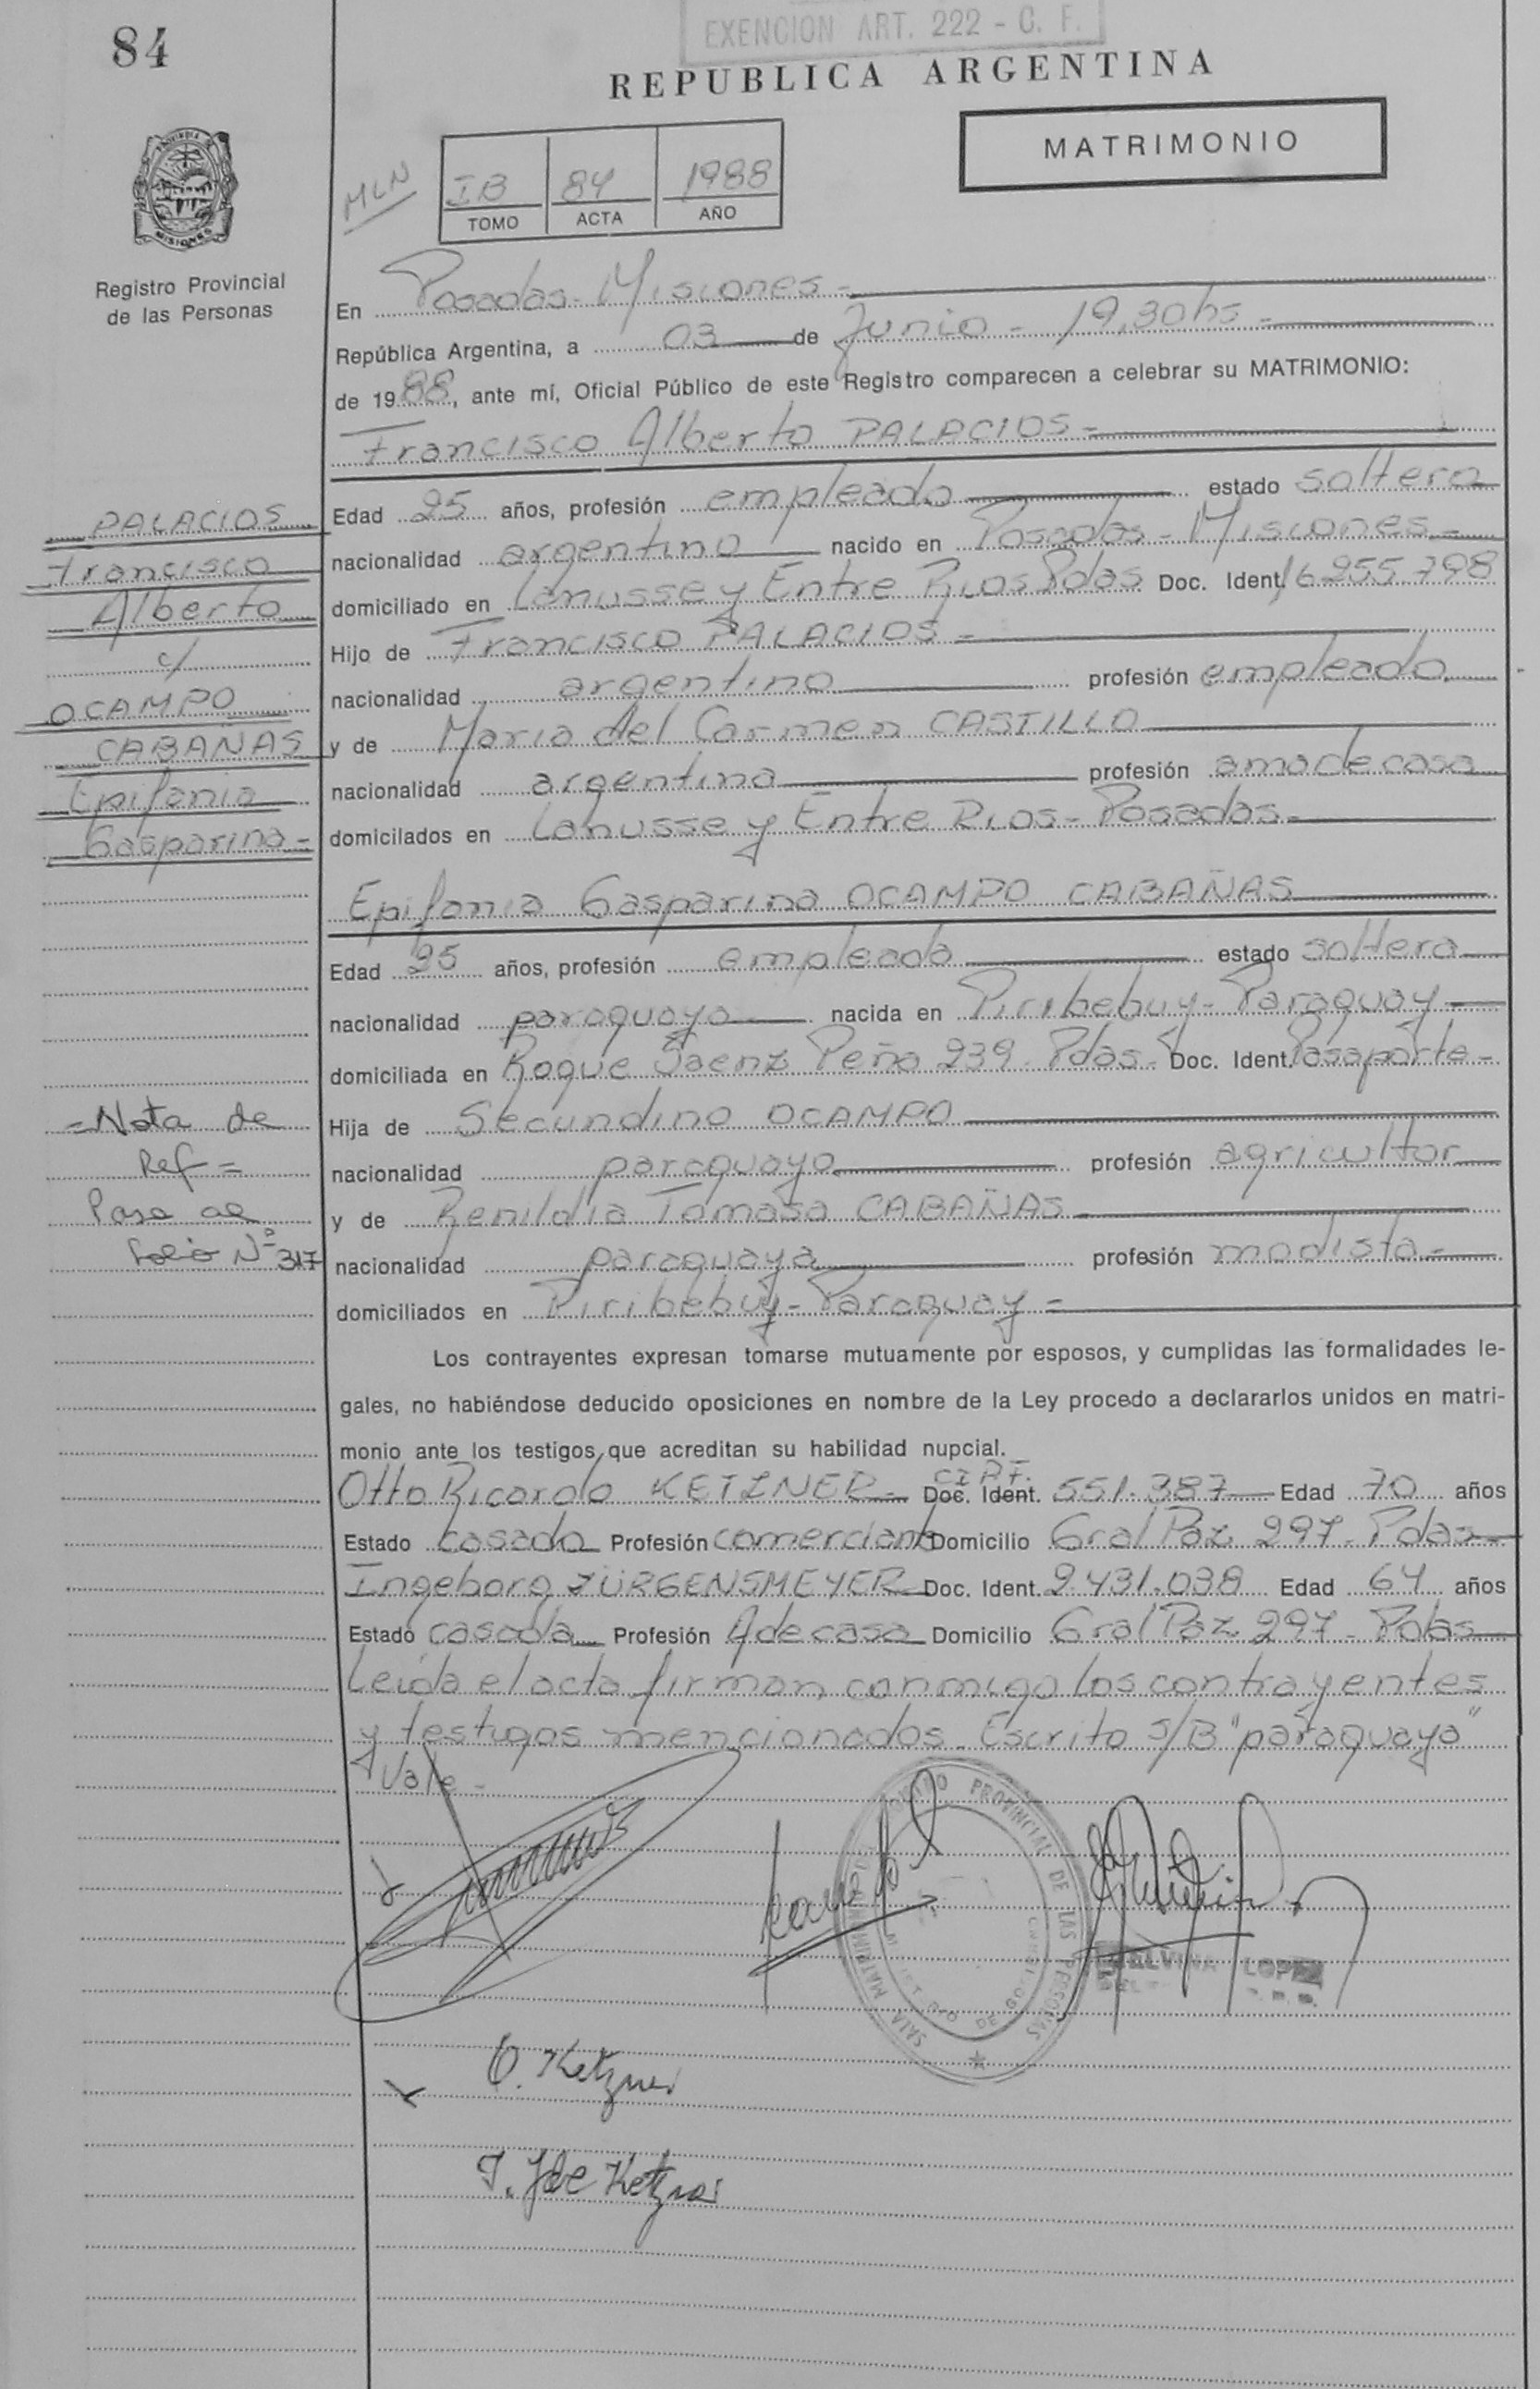 84
EXENCION ART. 222 - C. F.
REPUBLICA ARGENTINA
MATRIMONIO
MLN
IB 84 1988
TOMO ACTA AÑO
PROVINCIA
MISIONES
Registro Provincial
de las Personas
En Posadas - Misiones -
República Argentina, a 03 de Junio - 19,30 hs -
de 1988, ante mí, Oficial Público de este Registro comparecen a celebrar su MATRIMONIO:
Francisco Alberto PALACIOS -
Edad 25 años, profesión empleado estado soltero
nacionalidad argentino nacido en Posadas - Misiones -
domiciliado en Lanusse y Entre Rios Pdas Doc. Ident. 16.255.798
Hijo de Francisco PALACIOS -
nacionalidad argentino profesión empleado
y de Maria del Carmen CASTILLO
nacionalidad argentina profesión ama de casa
domicilados en Lanusse y Entre Rios - Posadas -
PALACIOS
Francisco
Alberto
c/
OCAMPO
CABAÑAS
Epifania
Gasparina -
Epifania Gasparina OCAMPO CABAÑAS
Edad 25 años, profesión empleada estado soltera
nacionalidad paraguaya nacida en Piribebuy - Paraguay
domiciliada en Roque Saenz Peña 239 - Pdas - Doc. Ident. Pasaporte -
Hija de Secundino OCAMPO
nacionalidad paraguayo profesión agricultor
y de Renildia Tomasa CABAÑAS
nacionalidad paraguaya profesión modista -
domiciliados en Piribebuy - Paraguay =
= Nota de
Ref =
Pasa al
Folio Nº 317
Los contrayentes expresan tomarse mutuamente por esposos, y cumplidas las formalidades le-
gales, no habiéndose deducido oposiciones en nombre de la Ley procedo a declararlos unidos en matri-
monio ante los testigos que acreditan su habilidad nupcial.
Otto Ricardo KETZNER - Doc. Ident. 551.387 Edad 70 años
Estado casado Profesión comerciante Domicilio Gral Paz 297 - Pdas
Ingeborg JÜRGENSMEYER Doc. Ident. 2.431.038 Edad 64 años
Estado casada Profesión A de casa Domicilio Gral Paz 297 - Pdas
Leida el acta firman conmigo los contrayentes
y testigos mencionados. Escrito S/B "paraguayo"
Vale -
REGISTRO PROVINCIAL DE LAS PERSONAS
SALA MATRIMONIO
LOPEZ
O. Ketzner
I. J de Ketzner